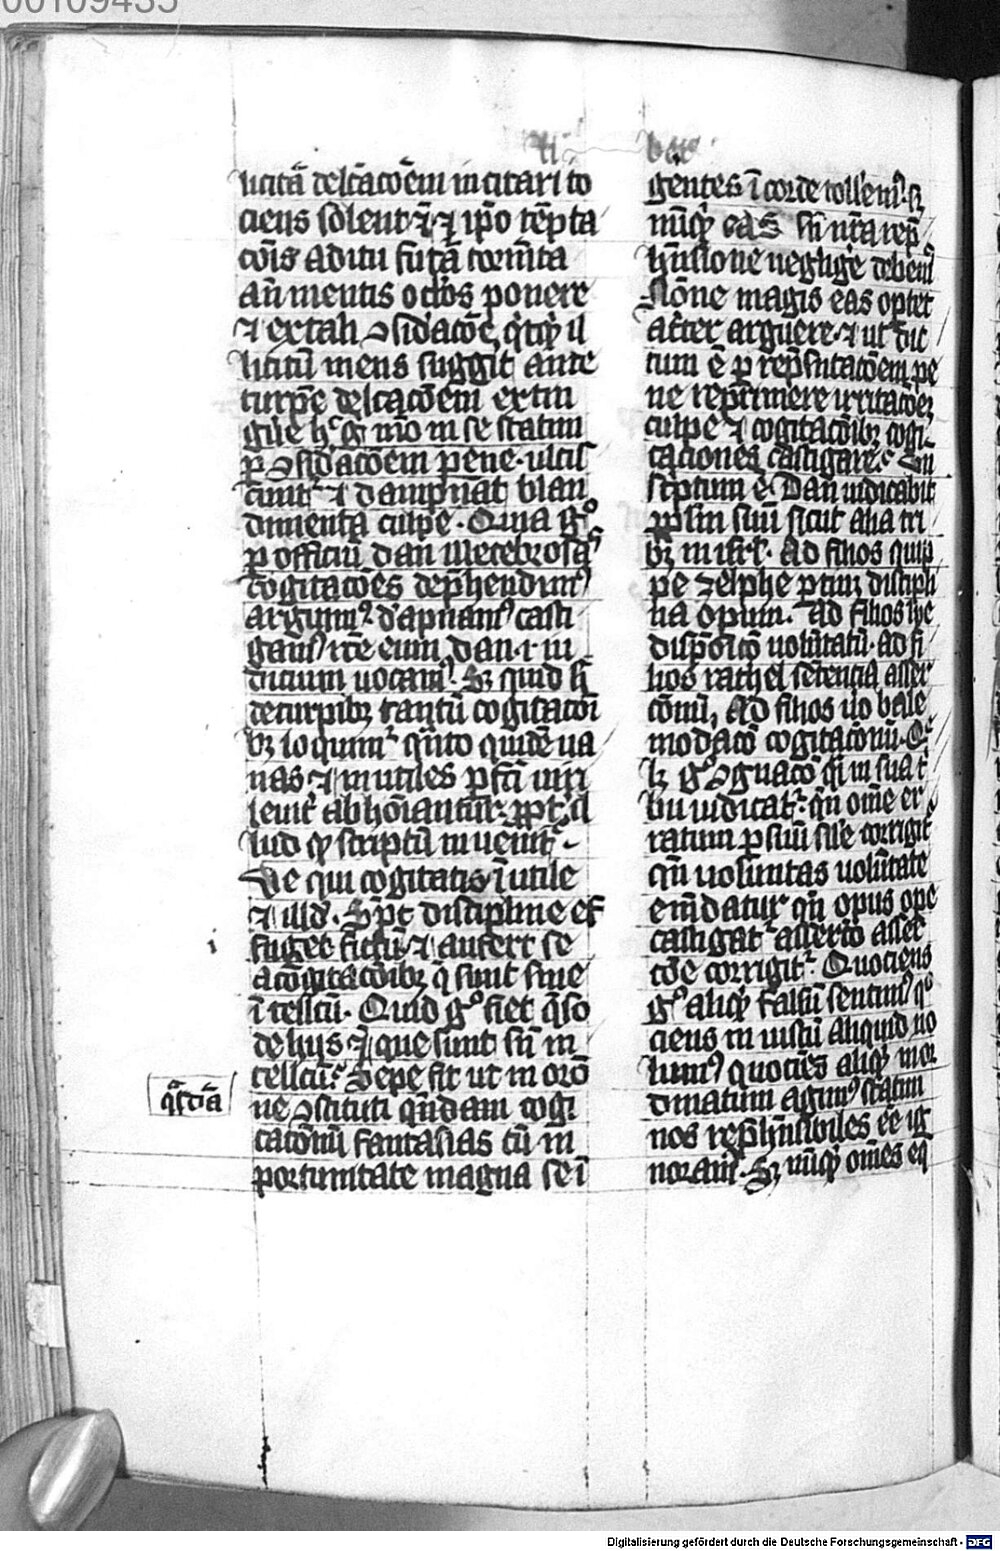 00109435
licitā delc̄acōēm incitari to
ciens solent r̄ ⁊ ip̄o tēpta
cōis aditu futā tormēta
an̄ mentis oc̄los ponere
⁊ ex tali ↄsid'acōe q̄cq̄ il
licitū mens suggīt ante
turpē delcacōēm extin
gue
p ↄsid'acōēm pene ulcis
cinit' ⁊ dampnāt blan
dimenta culpe. Quia gͦ
p officiū dan illecebrosas
cogitacōēs dep̄hendim'
argum' dāpnam' casti
gam' ite eum dan .i. iu
dicium uocam'. Sꝫ quid
de turpibꝫ tantū cogitacōī
bꝫ loquim' q̄nto quidē ua
nas ⁊ inutiles p̄fc̄i uiri
leuit' abhoīantur ꝓpt' il
lud ꝙ scriptū inuenit'
Ve qui cogitatis īutile
⁊ illd'. Sp̄c discipline ef
fuget fictū ⁊ auferet se
a cogitacōībꝫ q̄ sunt sine
ītellcū. Quid gͦ fiet q̄so
de hijs que sunt sn̄ in
tellcū Sepe fit ut in orō
q̄stia
ne ↄstituti q̄ndam cogi
tacōnū fantasias cū in
portunitate magna se ī
li bēr
gentes ī corde tollem'. sꝫ
nūq̄ eas sn̄ nr̄a rep̄
hn̄sione neglige debem'
Nōne magis eas optet
acrit' arguere ⁊ ut dic
tum ē p rep̄sntacōēm pe
ne rep̄rimere irritacōeꝫ
culpe ⁊ cogitacōībꝫ cogi
taciones castigare
scptum ē. Dan iudicabit
ppl̄m suū sicut alia tri
bꝫ in isrl. Ad filios quip
pe zelphe ptinꝫ discipli
na opum. Ad filios lye
dispōicō uolūtatū. ad fi
lios rachel sētencia asser
cōnū, Ad filios uo bale
modacō cogitacōnū.
in sua t'
bu iudicat' qn̄ om̄e er
ratum p suū sile corrigit'
qn̄ uoluntas uolūtate
emēdatur qn̄ opus ope
castigat' assertō asser
cōe corrigit'. Quociens
gͦ aliq̄ falsū sentim' qͦ
ciens in iustū aliquid uo
lum' quociēs aliq̄ inor
dinatum agim' statim
nos rep̄hn̄sibiles ēē ig
noram'. Sꝫ nūq̄ om̄es eq̄
Digitalisierung gefördert durch die Deutsche Forschungsgemeinschaft - DFG